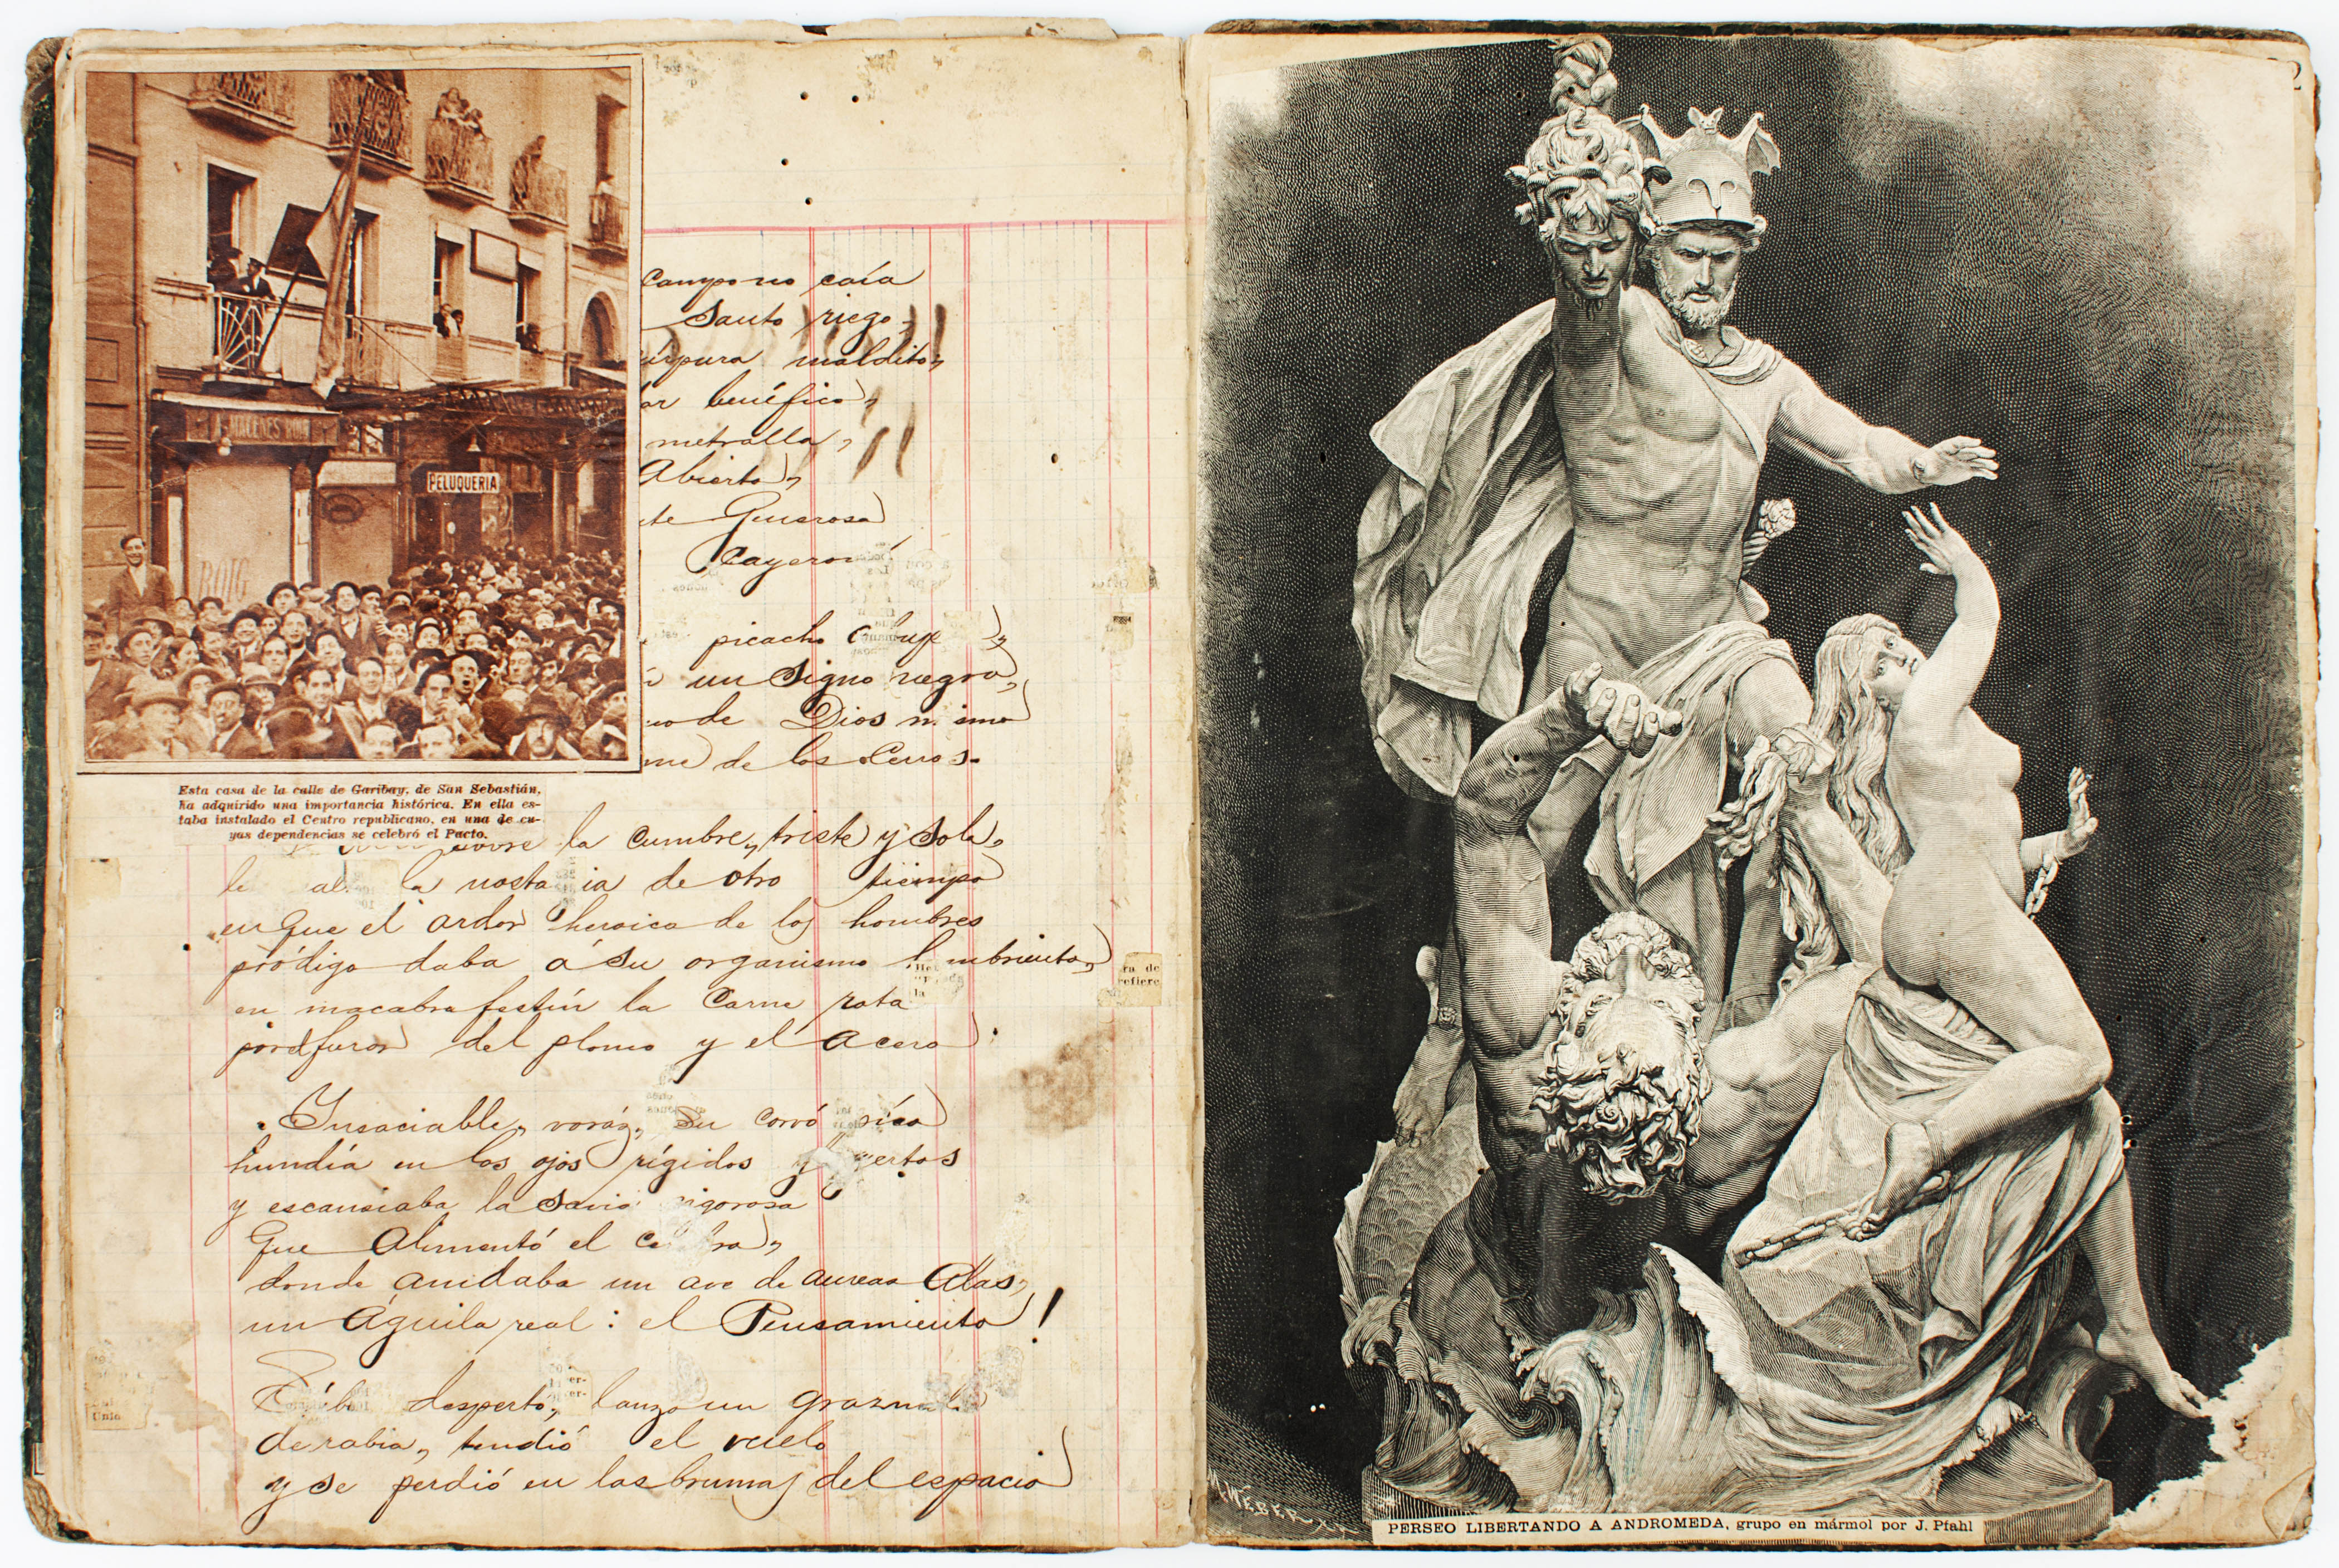 ALMACENES ROIG
PELUQUERIA
ROIG
Esta casa de la calle de Garibay, de San Sebastián,
ha adquirido una importancia histórica. En ella es-
taba instalado el Centro republicano, en una de cu-
yas dependencias se celebró el Pacto.
Campo no caía
Santo riego
úrpura maldito,
ar benéfico,
metralla,
Abierto,
te Generosa
Cayeron
picacho
un Signo negro,
de Dios mismo
de los Cerros.
sobre la Cumbre, triste y Sola,
la nosta ia de otro tiempo
en que el ardor heroico de los hombres
pródigo daba á su organismo h mbriento,
en macabro festín la Carne rota
por el furor del plomo y el Acero:
Insaciable, voráz, Su corvó pico
hundía en los ojos rígidos y ertos
y escansiaba la Savia vigorosa
que Alimentó el ce bro,
donde anidaba un ave de aureas Alas,
un Águila real: el Pensamiento!
desperto, lanzo un grazn
de rabia, tendió el vuelo
y se perdió en las brumas del espacio
ra de
refiere
Unio
M. WEBER X.A.
PERSEO LIBERTANDO A ANDROMEDA, grupo en mármol por J. Pfahl